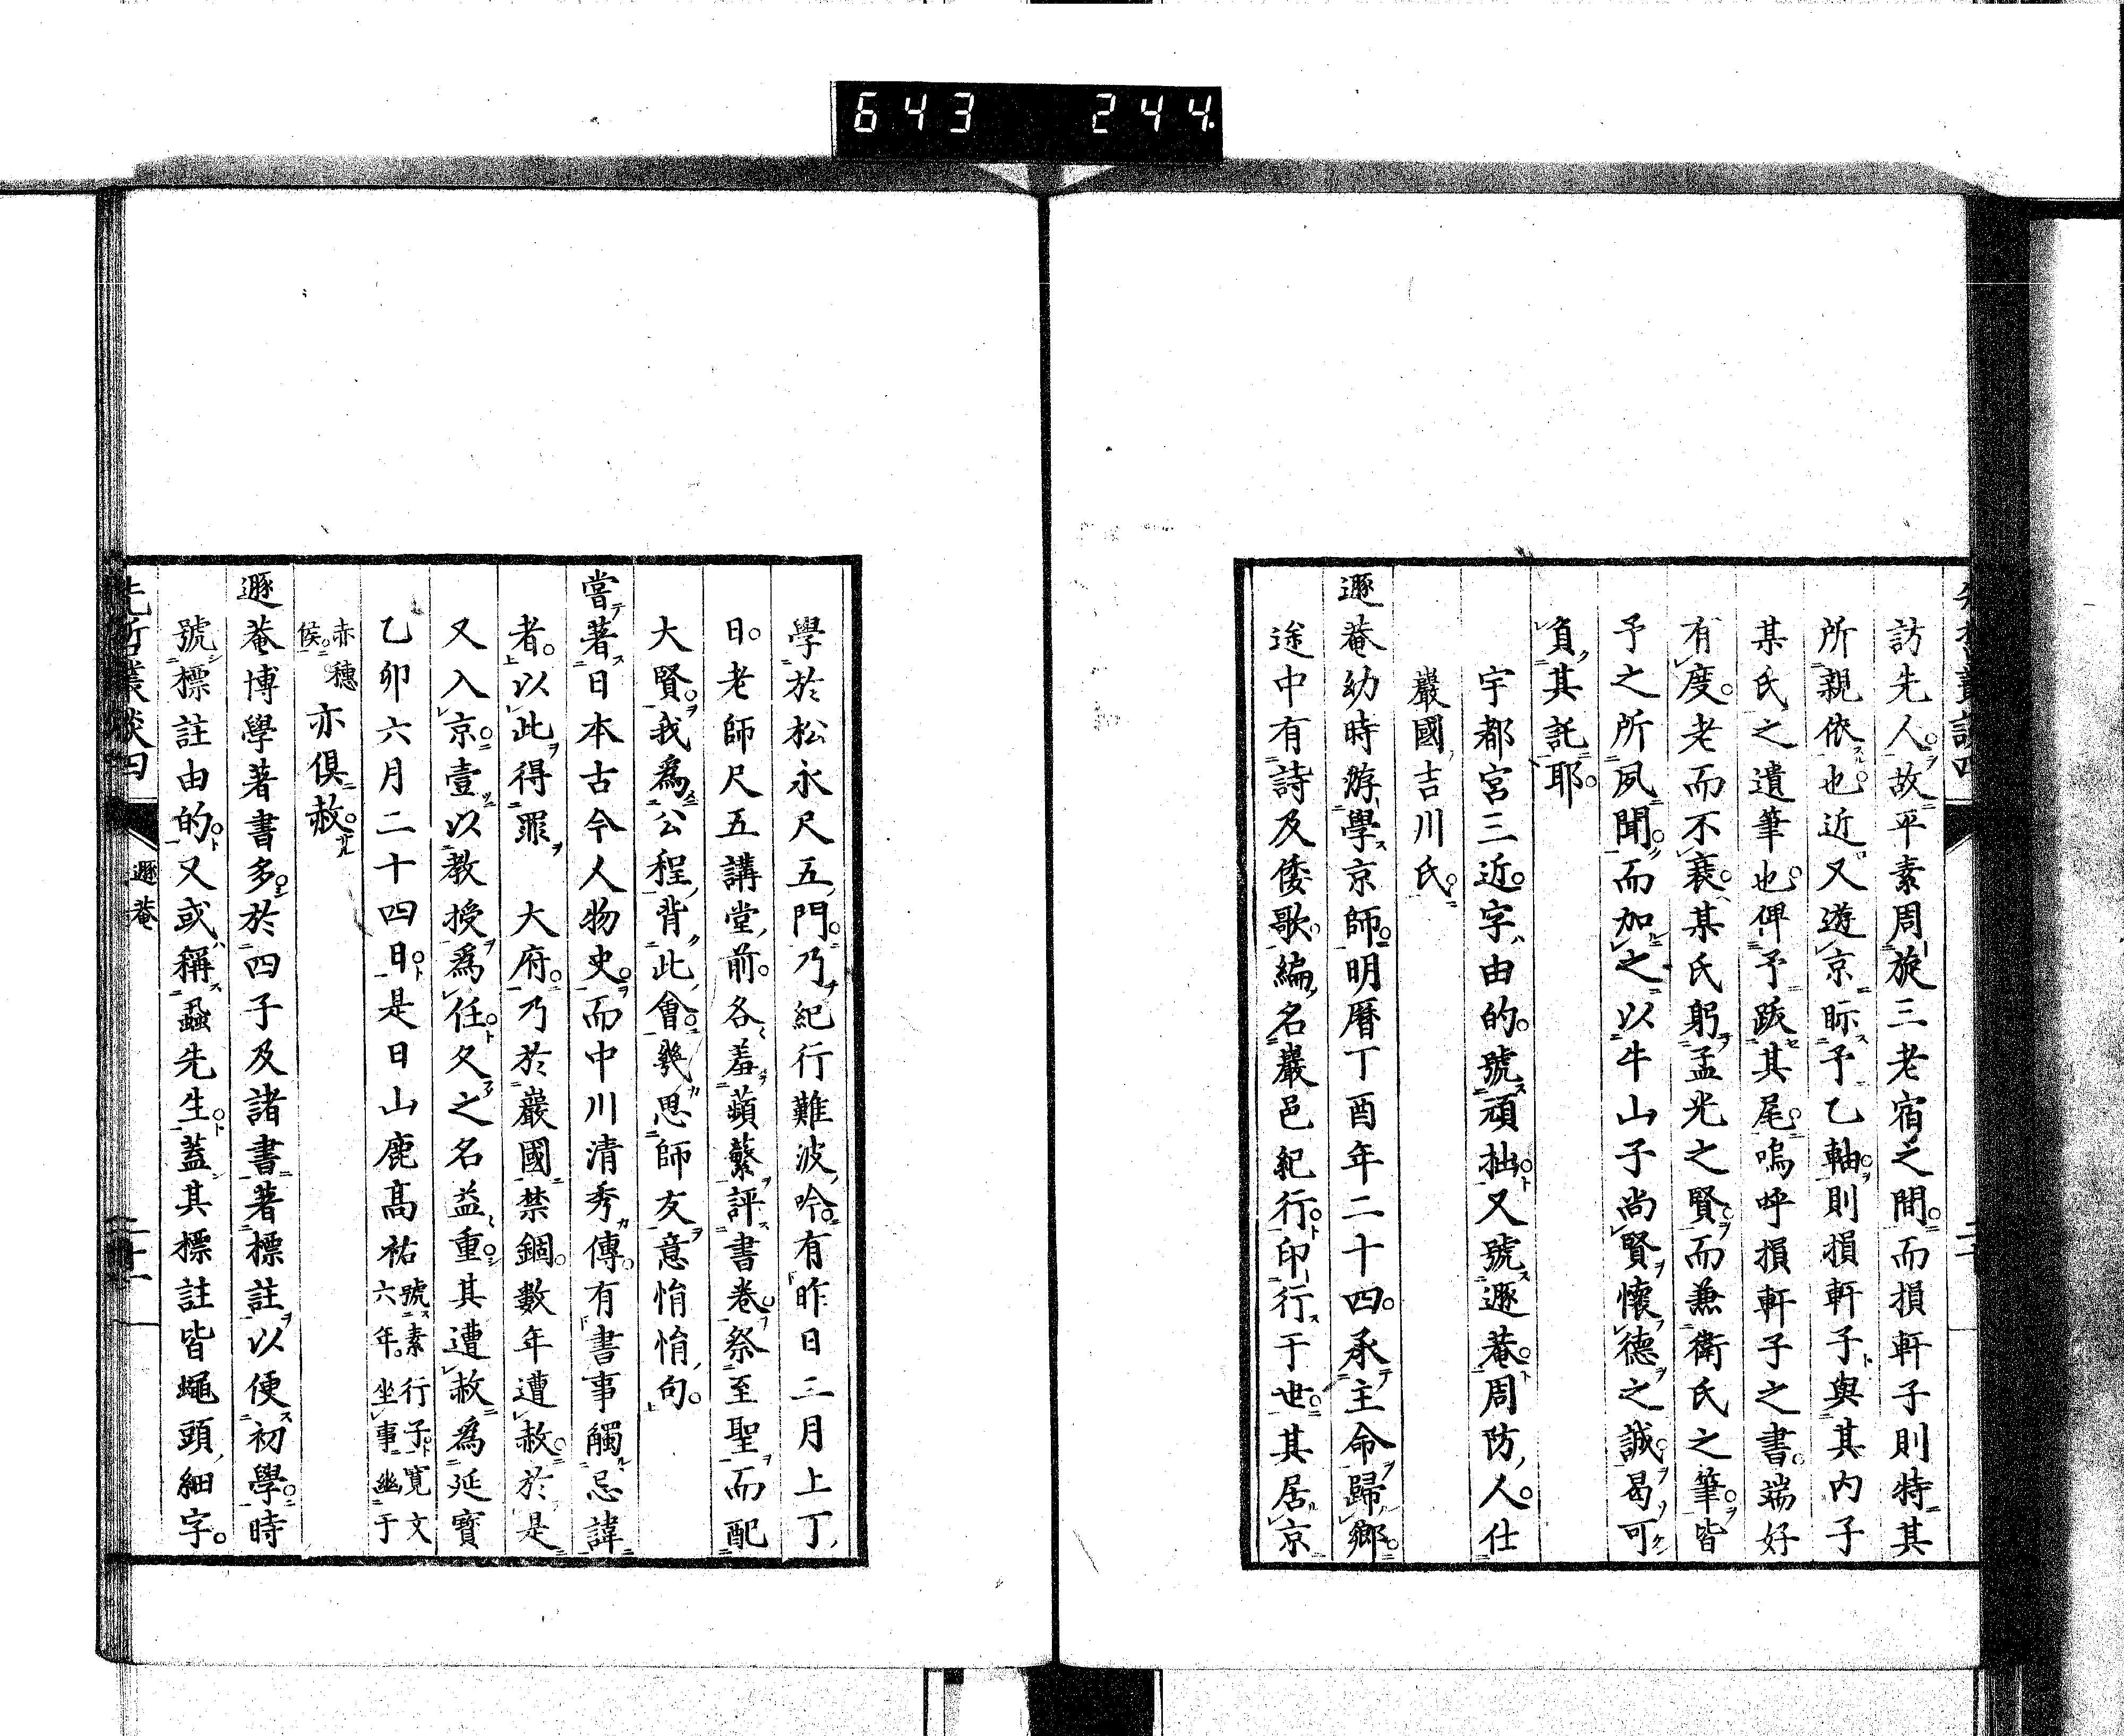 643 244
訪先人故平素周旋三老宿之間而損軒子則特其
所親依也近又遊京眎予乙軸則損軒子與其内子
某氏之遺筆也俾予跋其尾嗚呼損軒子之書端好
有度老而不衰某氏躬孟光之賢而兼衛氏之筆皆
予之所夙聞而加之以牛山子尚賢懷德之誠曷可
負其託耶
宇都宮三近字由的號頑拙又號遯菴周防人仕
巖國吉川氏
遯菴幼時游學京師明曆丁酉年二十四承主命歸鄉
途中有詩及倭歌編名巖邑紀行印行于世其居京
學於松永尺五門乃紀行難波吟有昨日二月上丁
日老師尺五講堂前各羞蘋蘩評書卷祭至聖而配
大賢我為公程背此會幾思師友意悁悁句
嘗著日本古今人物史而中川清秀傳有書事觸忌諱
者以此得罪 大府乃於巖國禁錮數年遭赦於是
又入京壹以教授為任久之名益重其遭赦為延寶
乙卯六月二十四日是日山鹿高祐號素行子寬文六年坐事幽于
赤穗侯亦俱赦
遯菴博學著書多於四子及諸書著標註以便初學時
號標註由的又或稱蝨先生蓋其標註皆蠅頭細字
先哲叢談四
遯菴
二十一